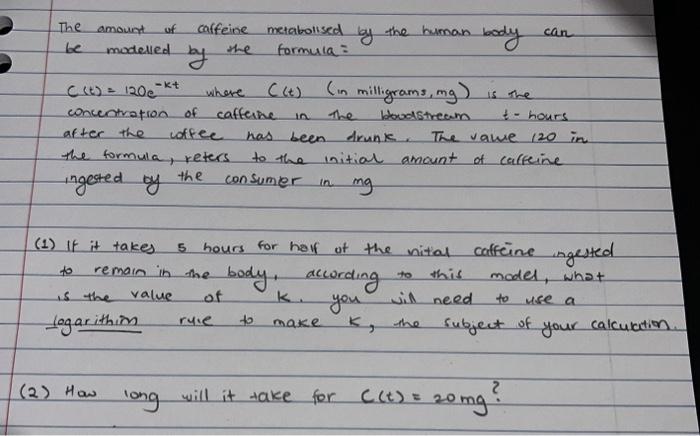 The amount of caffeine metabolised by the human body can
be modelled by the formula:
C(t) = 120e^-kt where C(t) (in milligrams, mg) is the
concentration of caffeine in the bloodstream t - hours
after the coffee has been drunk. The value 120 in
the formula, refers to the initial amount of caffeine
ingested by the consumer in mg
(1) If it takes 5 hours for half of the initial caffeine ingested
to remain in the body, according to this model, what
is the value of k. you will need to use a
logarithim rule to make k, the subject of your calculation.
(2) How long will it take for C(t) = 20mg?